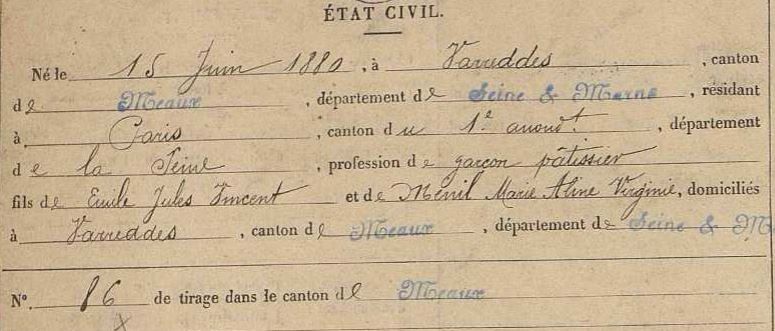 ÉTAT CIVIL.
Né le 15 Juin 1880, à Varreddes, canton
de Meaux, département de Seine & Marne, résidant
à Paris, canton du 1e arrondt, département
de la Seine, profession de garçon pâtissier
fils de Emile Jules Vincent et de Ménil Marie Aline Virginie, domiciliés
à Varreddes, canton de Meaux, département de Seine & M
No. 86 de tirage dans le canton de Meaux
X